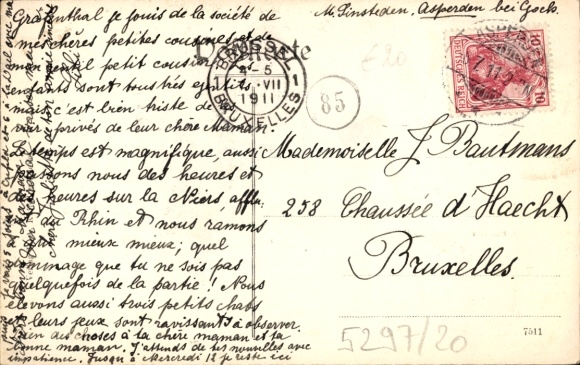 M. Pinsteden. Asperden bei Goch.
Grafenthal je jouis de la société de
mes chères petites cousines et de
mon petit cousin
enfants sont tous très gentils
mais c'est bien triste de
voir privés de leur chère Maman.
Le temps est magnifique, aussi
passons nous des heures et
des heures sur la Niers, afflu.
du Rhin et nous ramons
à qui mieux mieux; quel
dommage que tu ne sois pas
quelquefois de la partie! Nous
élevons aussi trois petits chats
et leurs jeux sont ravissants à observer.
bien des choses à la chère maman et ta
bonne maman. J'attends de tes nouvelles avec
impatience. Jusqu'à Mercredi 12 je reste ici
BRUSSEL
4-5
1 VII 1
1911
BRUXELLES
85
£20
DEUTSCHES REICH
10 10
Mademoiselle J. Bautmans
258 Chaussée d'Haecht
Bruxelles.
5297/20
7511